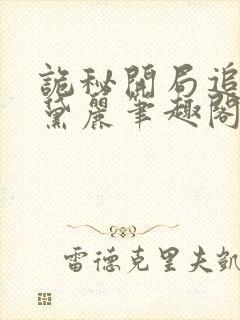 詭秘開局追
黛麗筆趣閣
雷德克里夫凱